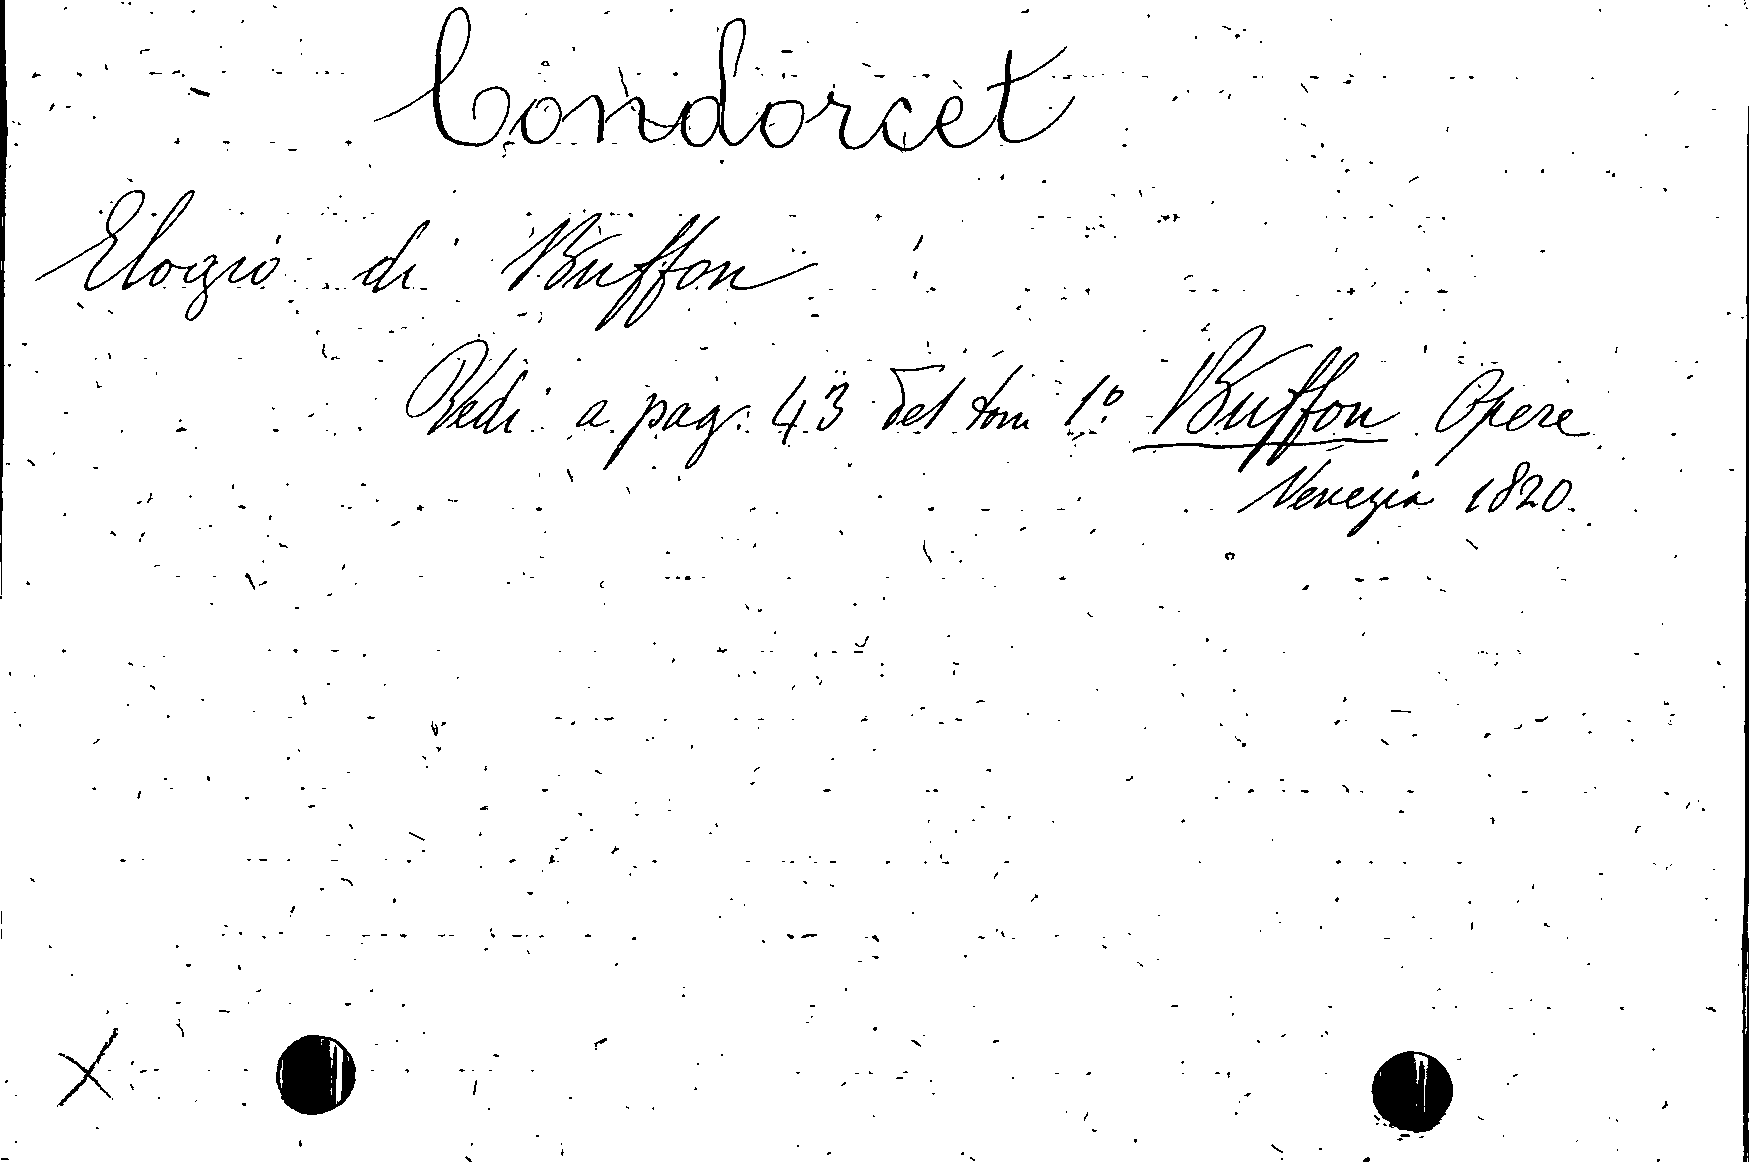 Condorcet
Elogio di Buffon
Vedi a pag. 43 del tom 1º Buffon Opere
Venezia 1820.
X